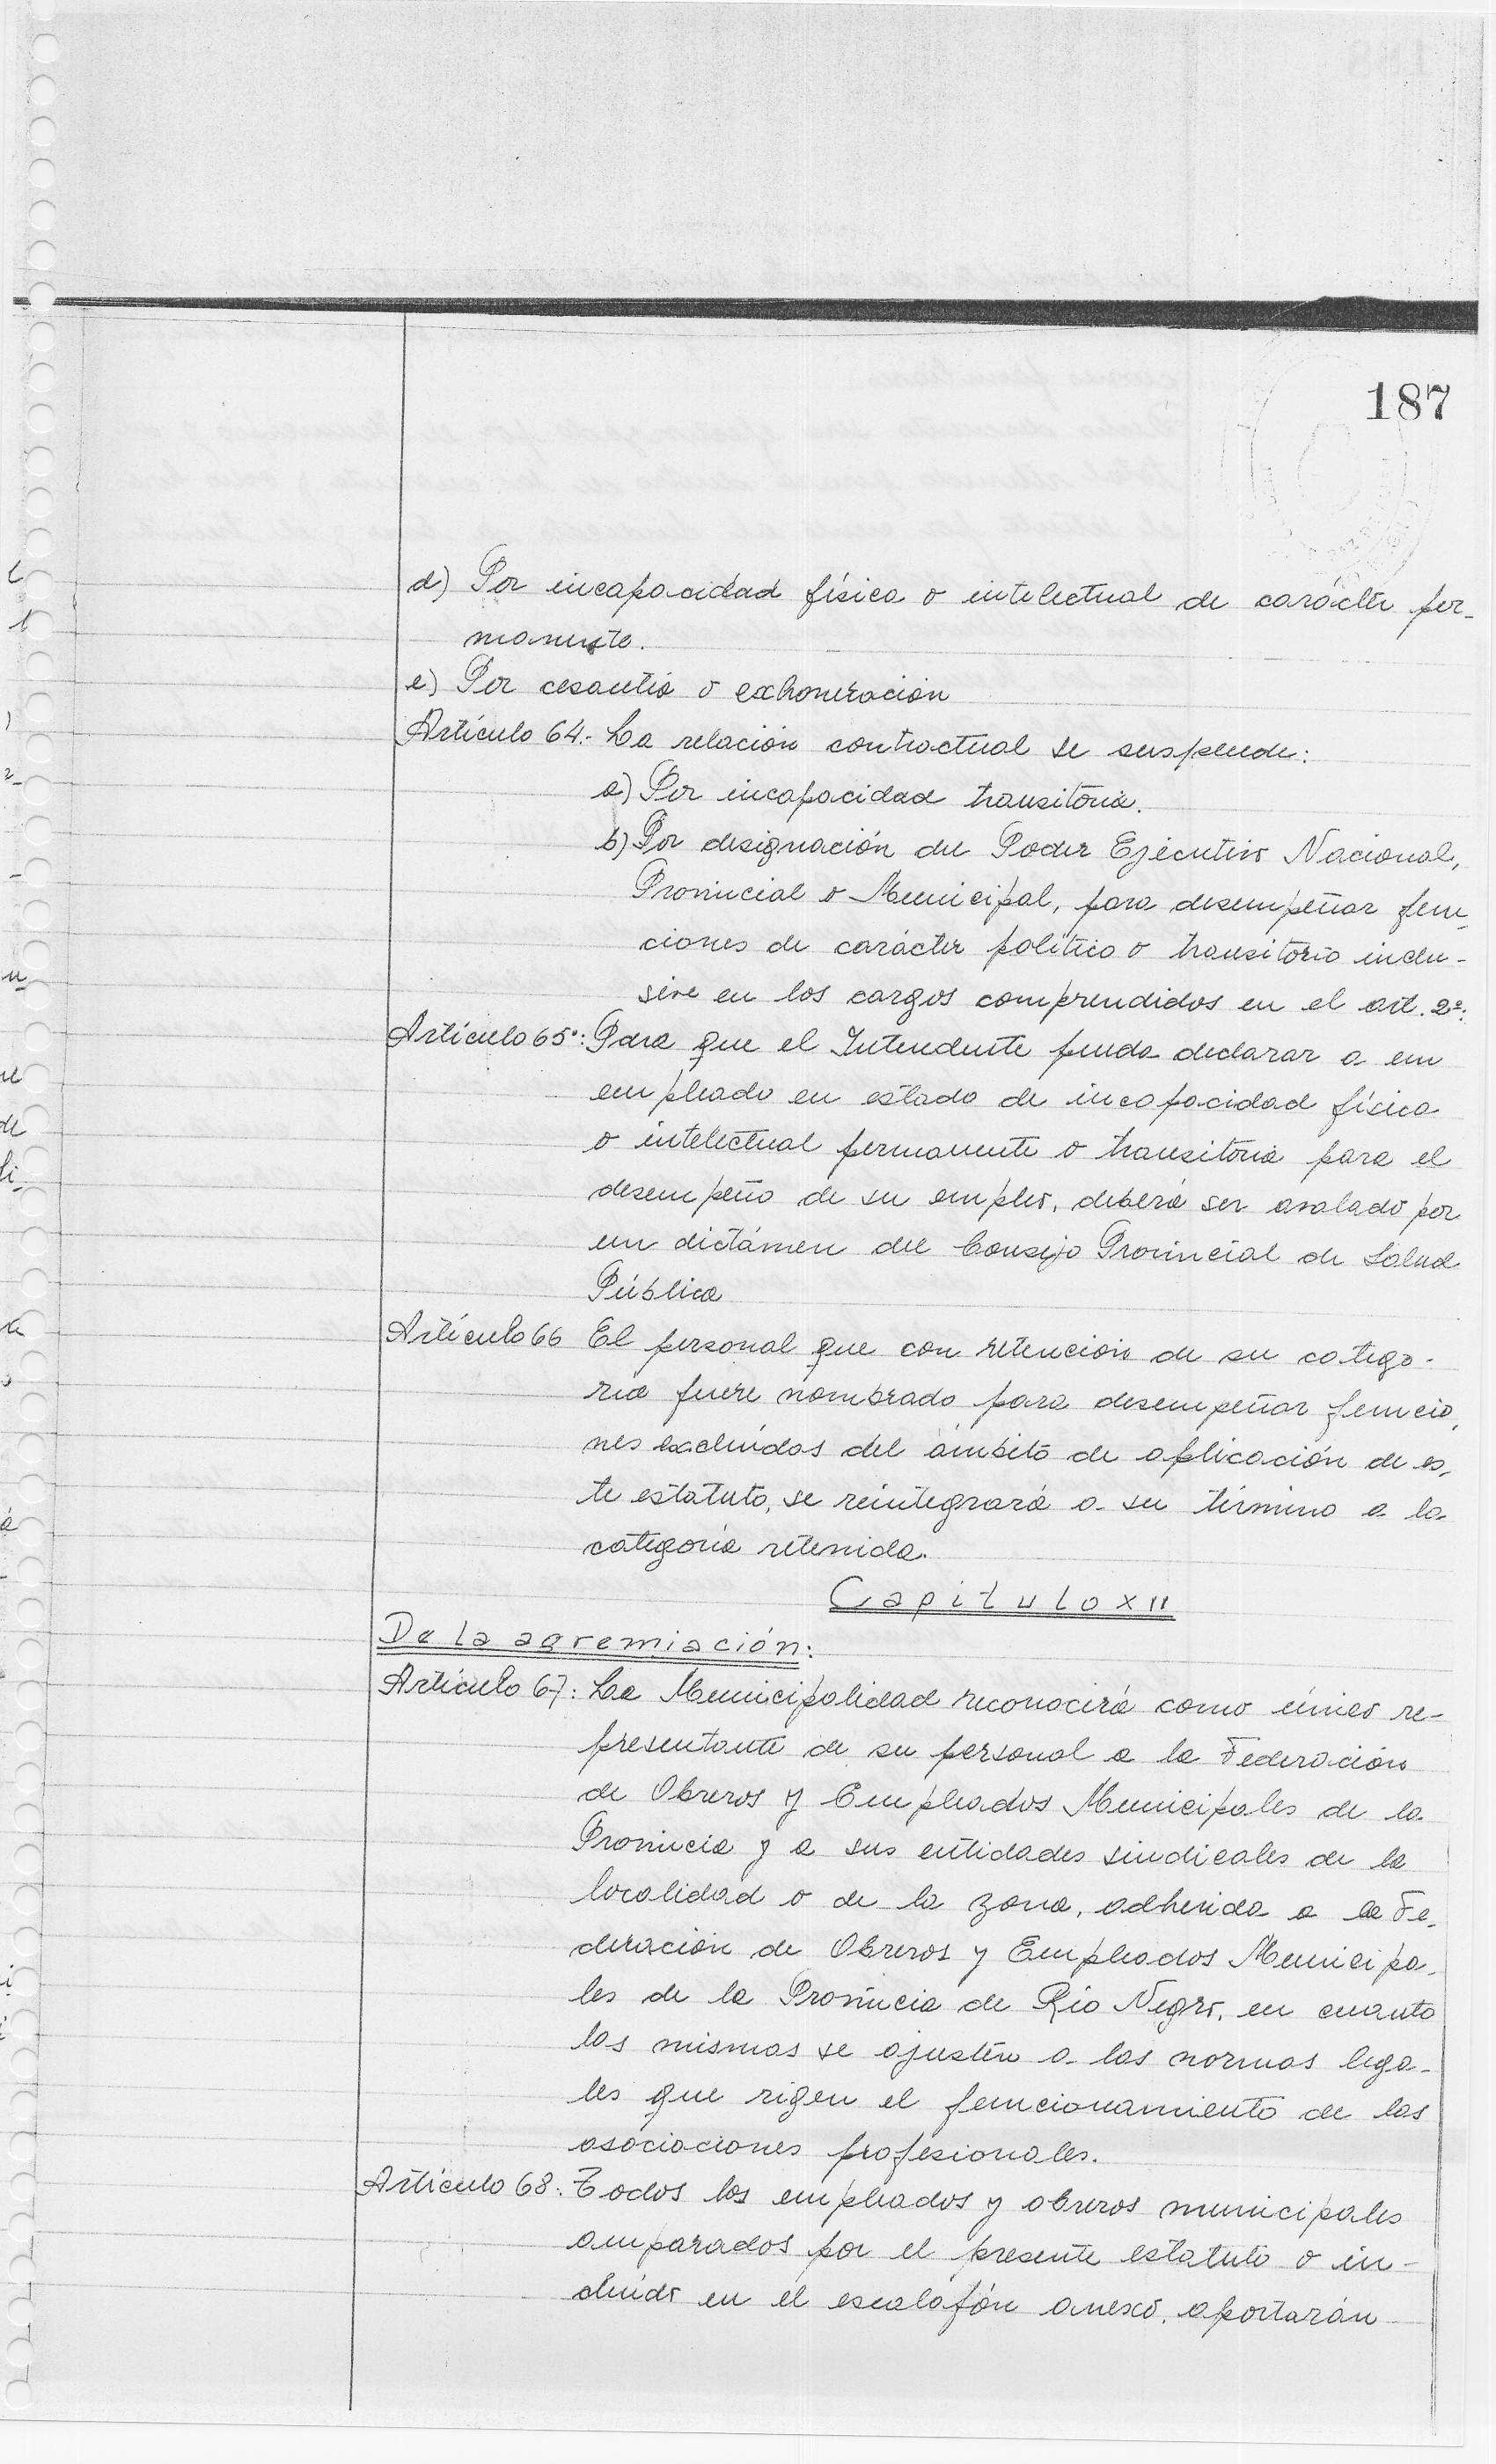 187
d) Por incapacidad física o intelectual de carácter per-
manente.
e) Por cesantía o exhoneración
Artículo 64.- La relación contractual se suspende:
a) Por incapacidad transitoria.
b) Por designación del Poder Ejecutivo Nacional,
Provincial o Municipal, para desempeñar fun-
ciones de carácter político o transitorio inclu-
sive en los cargos comprendidos en el art. 2º:
Artículo 65º: Para que el Intendente pueda declarar a un
empleado en estado de incapacidad física
o intelectual permanente o transitoria para el
desempeño de su empleo, deberá ser avalado por
un dictámen del Consejo Provincial de Salud
Pública
Artículo 66 El personal que con retención de su catego-
ría fuere nombrado para desempeñar funcio-
nes excluídas del ámbito de aplicación de es-
te estatuto, se reintegrará a su término a la
categoría retenida.
Capitulo XII
De la agremiación:
Artículo 67: La Municipalidad reconocerá como único re-
presentante de su personal a la Federación
de Obreros y Empleados Municipales de la
Provincia y a sus entidades sindicales de la
localidad o de la zona, adherida a la Fe-
deración de Obreros y Empleados Municipa-
les de la Provincia de Río Negro, en cuanto
las mismas se ajusten a las normas lega-
les que rigen el funcionamiento de las
asociaciones profesionales.
Artículo 68: Todos los empleados y obreros municipales
amparados por el presente estatuto o in-
cluído en el escalafón anexo, aportarán